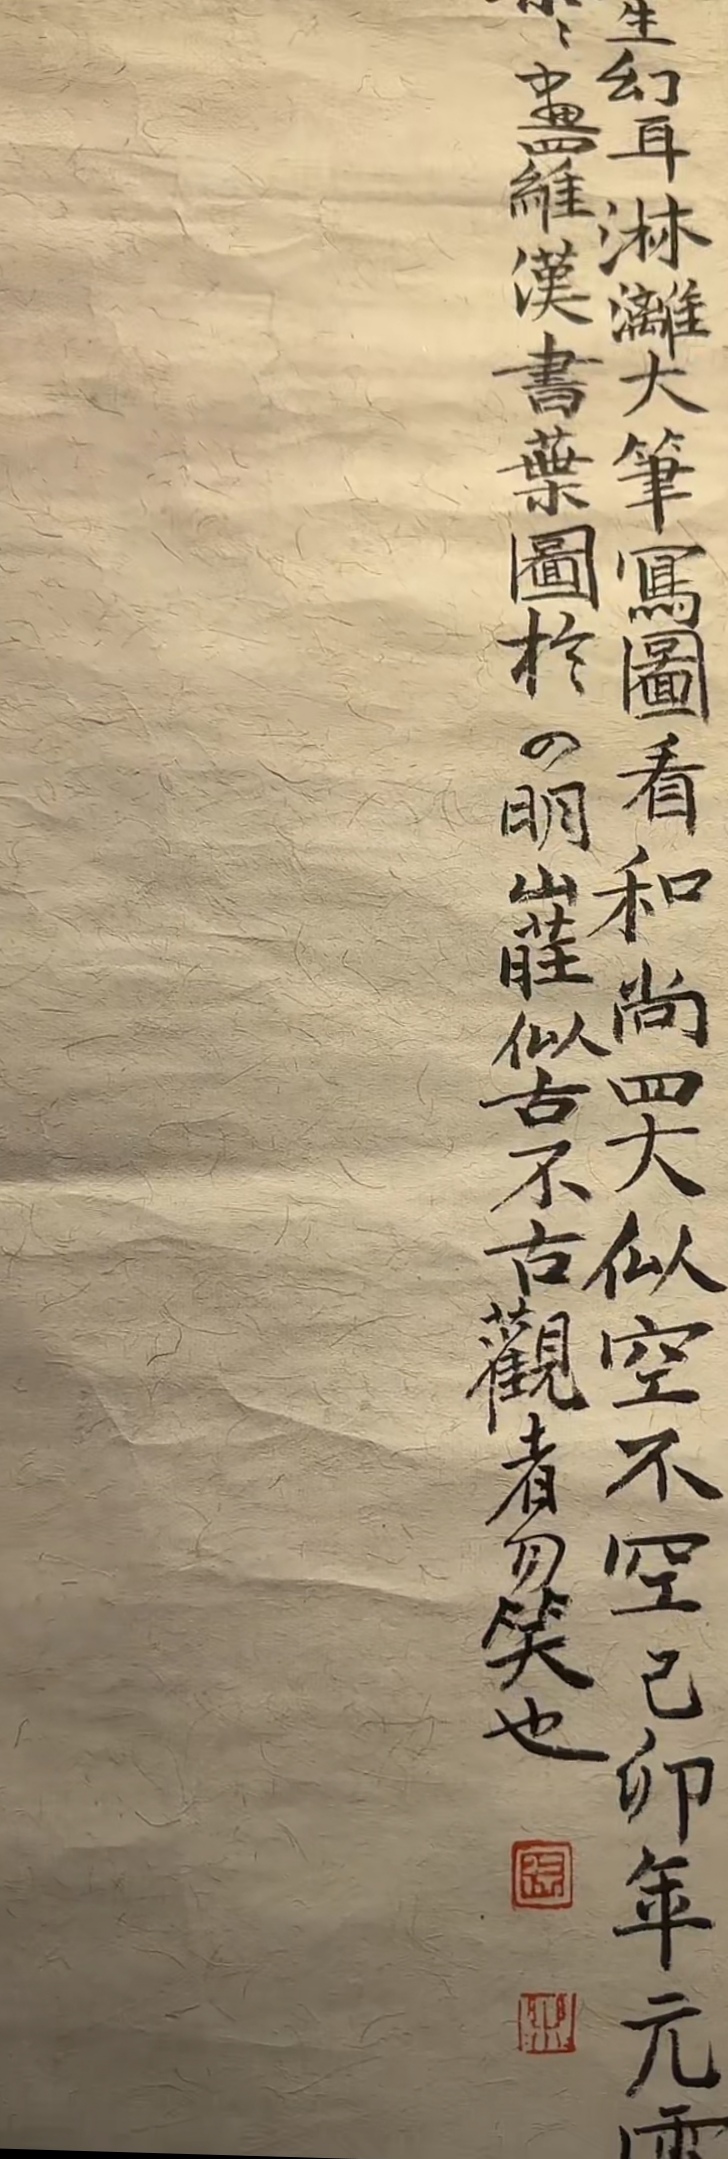 生幻耳淋漓大筆寫圖看和尚四大似空不空己卯年元
畫羅漢書葉圖於四明山莊似古不古觀者勿笑也